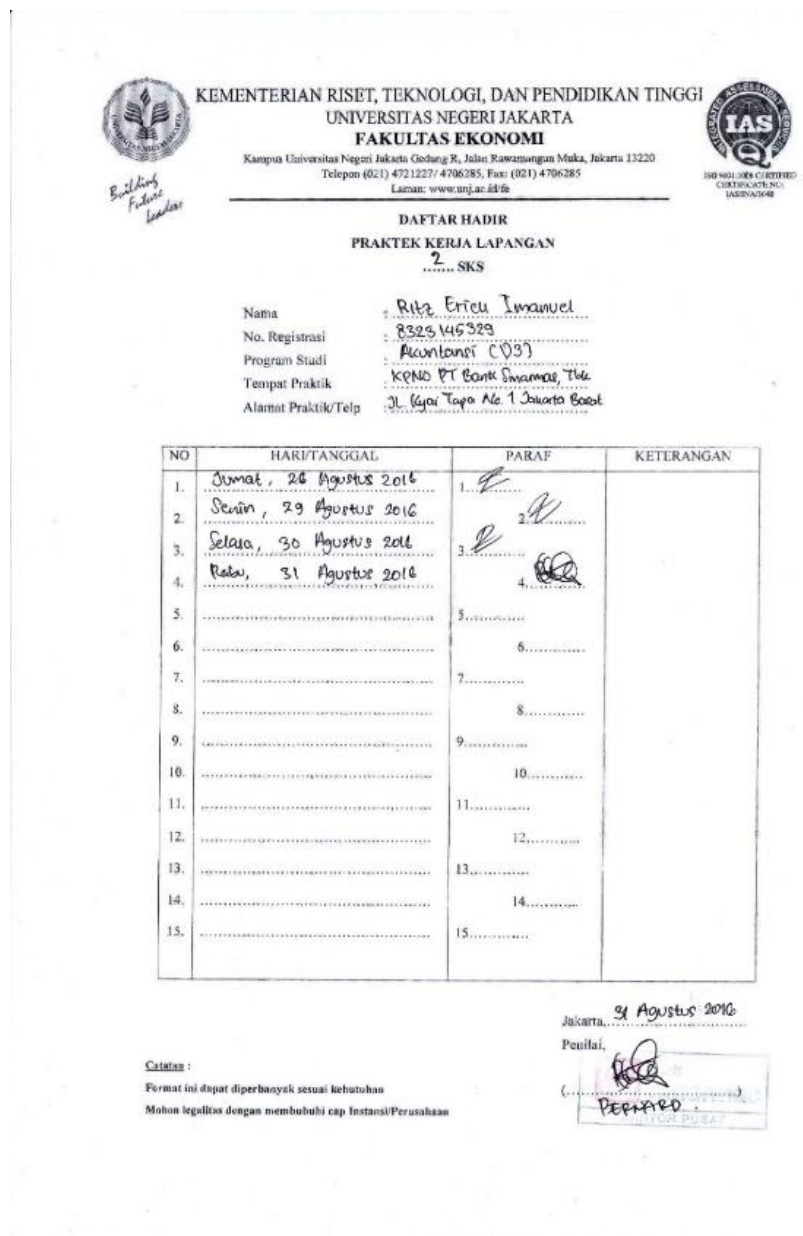 KEMENTERIAN RISET, TEKNOLOGI, DAN PENDIDIKAN TINGGI
UNIVERSITAS NEGERI JAKARTA
FAKULTAS EKONOMI
Kampus Universitas Negeri Jakarta Gedung R, Jalan Rawamangun Muka, Jakarta 13220
Telepon (021) 4721227/ 4706285, Fax: (021) 4706285
Laman: www.unj.ac.id/fe
Building
Future
Leaders
IAS
ISO 9001:2008 CERTIFIED
CERTIFICATE NO:
DAFTAR HADIR
PRAKTEK KERJA LAPANGAN
2 SKS
Nama : Ritz Erieu Imanuel
No. Registrasi : 8323145329
Program Studi : Akuntansi (D3)
Tempat Praktik : KPNO PT Bank Sinarmas, Tbk
Alamat Praktik/Telp : JL. Kyai Tapa No. 1 Jakarta Barat
NO HARI/TANGGAL PARAF KETERANGAN
1. Jumat, 26 Agustus 2016 1.
2. Senin, 29 Agustus 2016 2.
3. Selasa, 30 Agustus 2016 3.
4. Rabu, 31 Agustus 2016 4.
5. 5.
6. 6.
7. 7.
8. 8.
9. 9.
10. 10.
11. 11.
12. 12.
13. 13.
14. 14.
15. 15.
Jakarta, 31 Agustus 2016
Penilai,
(BERNARD.)
KANTOR PUSAT
Catatan :
Format ini dapat diperbanyak sesuai kebutuhan
Mohon legalitas dengan membubuhi cap Instansi/Perusahaan